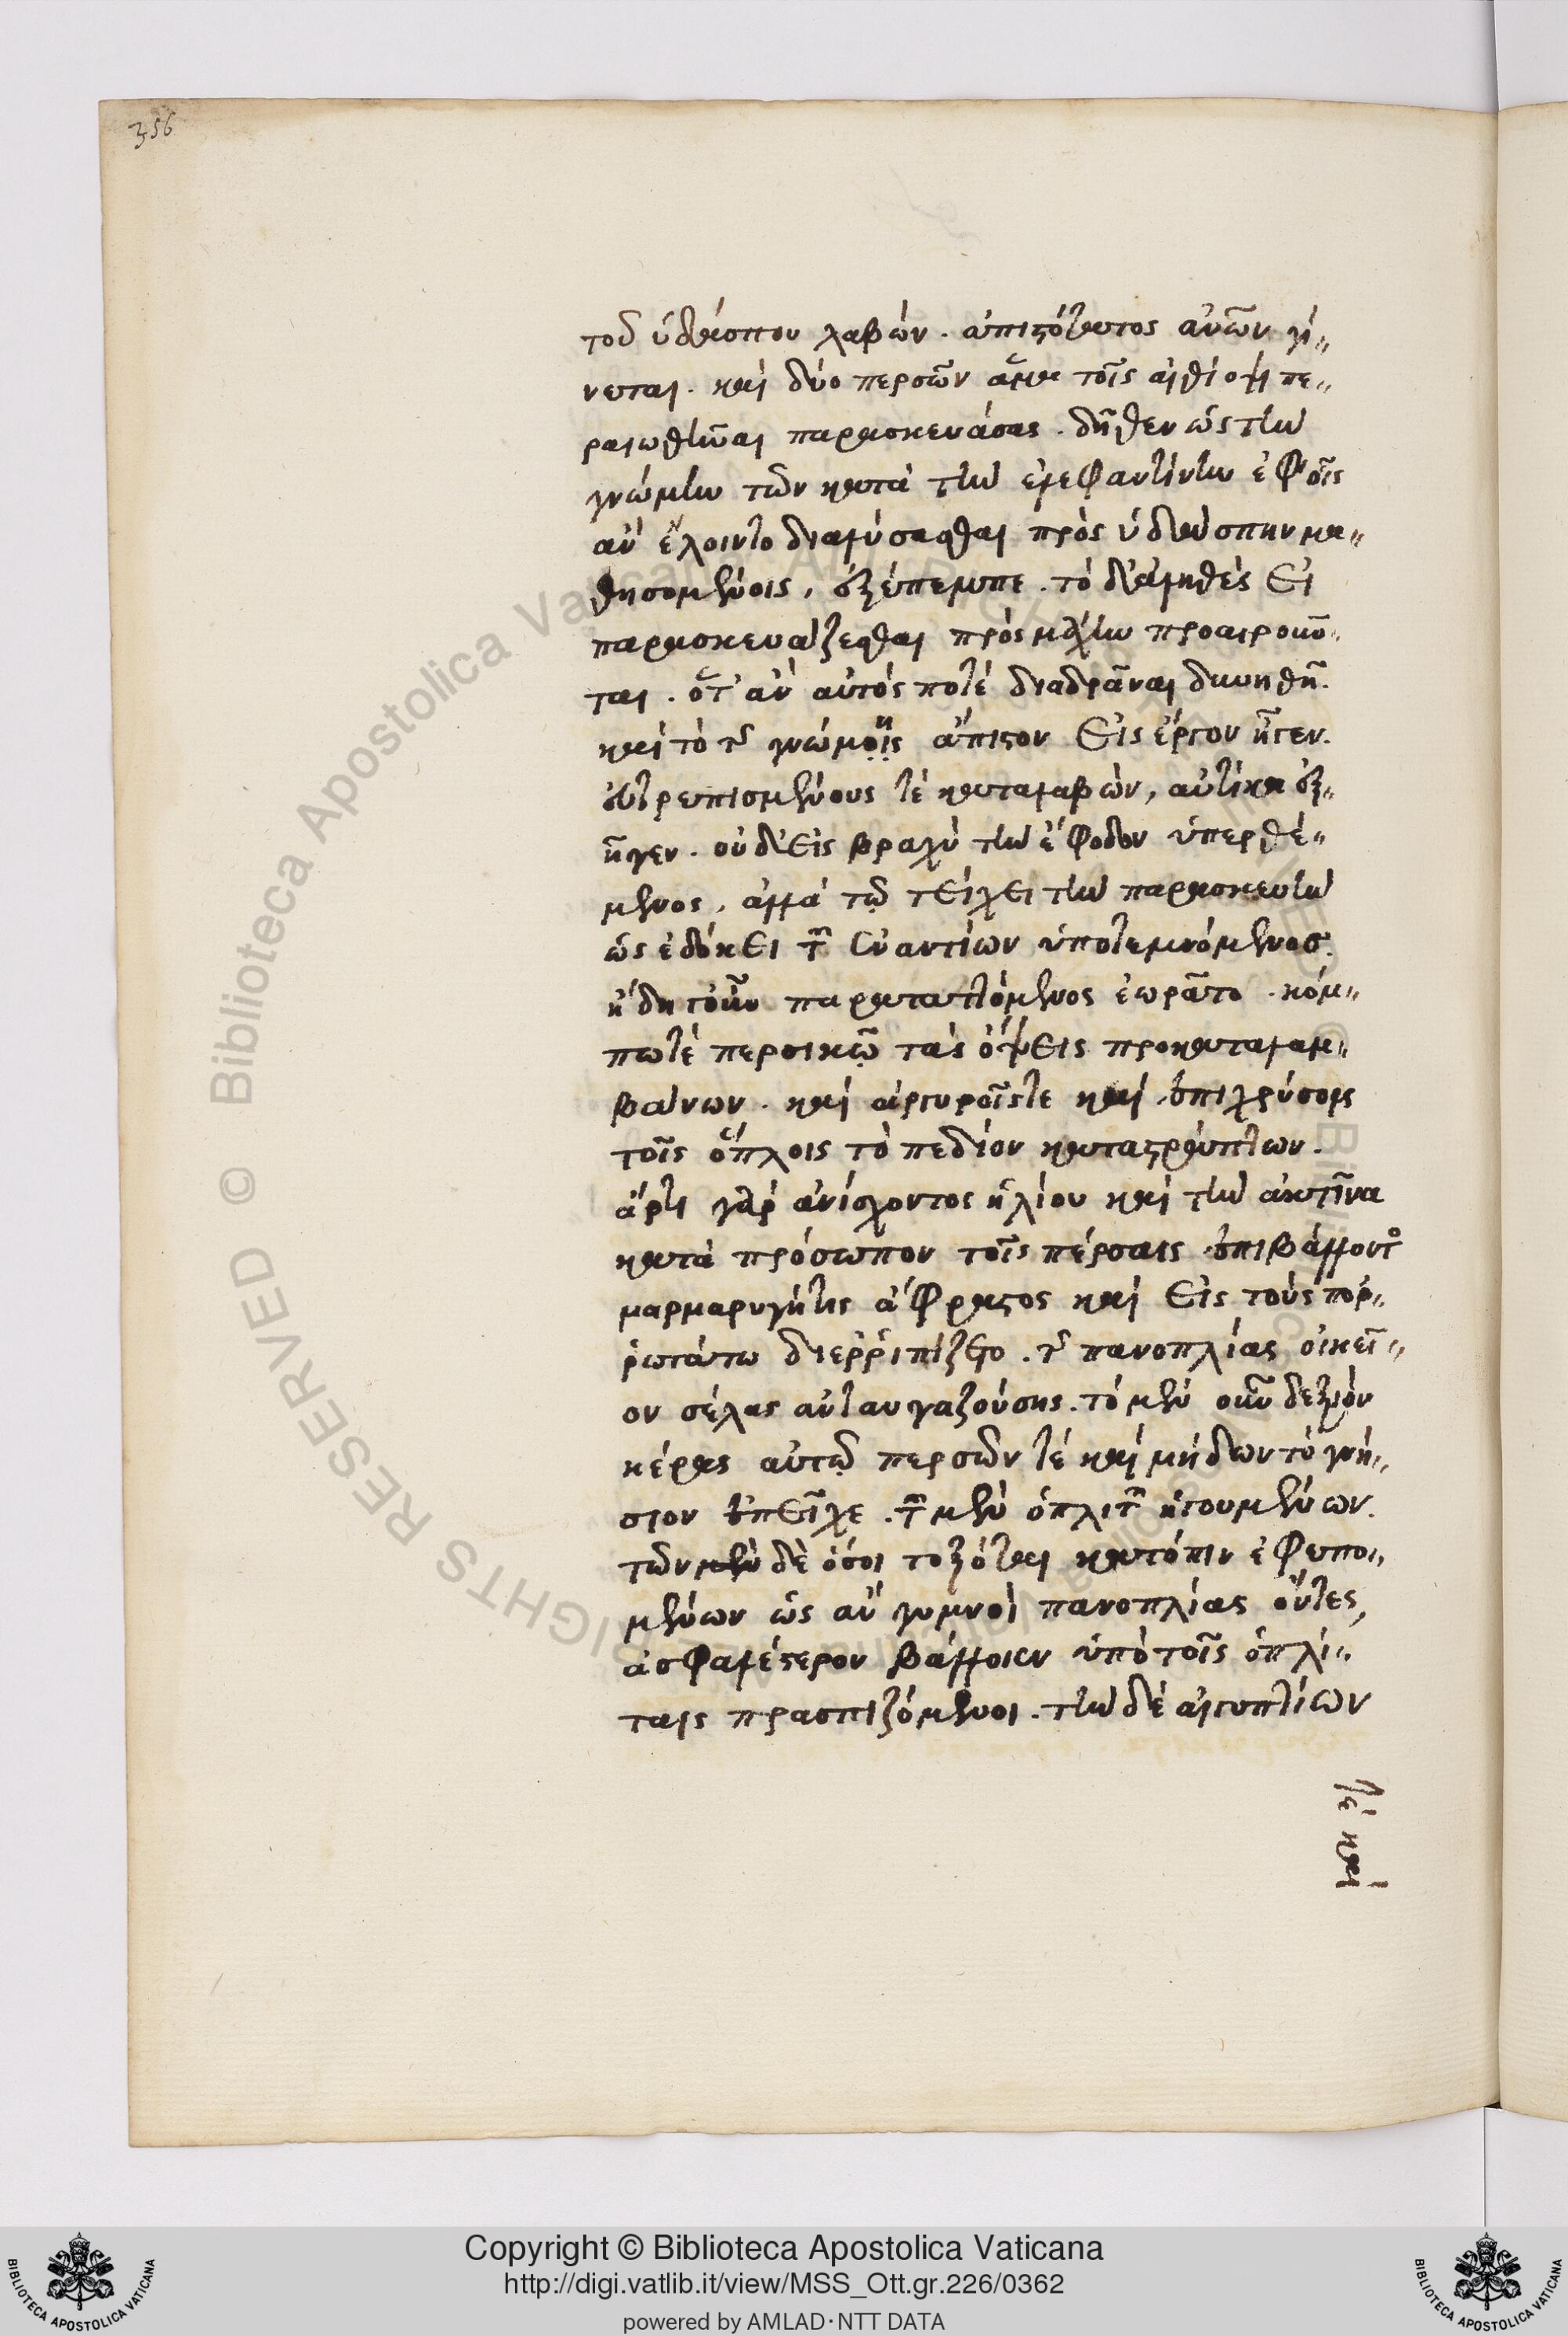 356
τοῦ ὑδάσπου λαβὼν. ἀπιστότατος αὐτῶν γί„
νεται. καὶ δύο περσῶν ἅμα τοῖς αἰθίοψι πε„
ραιωθῆναι παρασκευάσας. δῆθεν ὡς τὴν
γνώμην τῶν κατὰ τὴν ἐλεφαντίνην ἐφ' οἷς
ἂν ἕλοιντο διαλύσασθαι πρὸς ὑδάσπην μα„
θησομένοις, ἐξέπεμπε. τὸ δ' ἀληθὲς εἰ
παρασκευάζεσθαι πρὸς μάχην προαιροῦν„
ται. ὅτ' ἂν αὐτός ποτὲ διαδρᾶναι δυνηθῆ.
καὶ τὸ τῆς γνώμης ἄπιστον εἰς ἔργον ἦγεν.
εὐτρεπισμένους τὲ καταλαβὼν, αὐτίκα ἐξ„
ῆγεν. οὐδ' εἰς βραχὺ τὴν ἔφοδον ὑπερθέ„
μενος, ἀλλὰ τῷ τείχει τὴν παρασκευὴν
ὡς ἐδόκει τῶν ἐναντίων ὑποτεμνόμενος.
ἤδη τοῦν παραταττόμενος ἑωρᾶτο. κόμ„
πω τὲ περσικῷ τὰς ὄψεις προκαταλαμ„
βάνων. καὶ ἀργυροῖς τε καὶ ἐπιχρύσοις
τοῖς ὅπλοις τὸ πεδίον καταστράπτων.
ἄρτι γὰρ ἀνίσχοντος ἡλίου καὶ τὴν ἀκτῖνα
κατὰ πρόσωπον τοῖς πέρσαις ἐπιβάλλοντος
μαρμαρυγήτις ἄφραστος καὶ εἰς τοὺς πόρ„
ρωτάτω διερριπίζετο. τῆς πανοπλίας οἰκεῖ„
ον σέλας ἀνταυγαζούσης. τὸ μὲν οὖν δεξιὸν
κέρας αὐτῷ περσῶν τὲ καὶ μήδων τὸ γνή„
σιον ἐπεῖχε. τῶν μὲν ὁπλιτῶν ἡγουμένων.
τῶν μὲν δὲ ὅσοι τοξόται κατόπιν ἐφεπο„
μένων ὡς ἂν γυμνοὶ πανοπλίας ὄντες,
ἀσφαλέστερον βάλλοιεν ὑπὸ τοῖς ὁπλί„
ταις πρασπιζόμενοι. τὴν δὲ αἰγυπτίων
τὲ καὶ
Copyright © Biblioteca Apostolica Vaticana
http://digi.vatlib.it/view/MSS_Ott.gr.226/0362
powered by AMLAD·NTT DATA
BIBLIOTECA APOSTOLICA VATICANA
BIBLIOTECA APOSTOLICA VATICANA